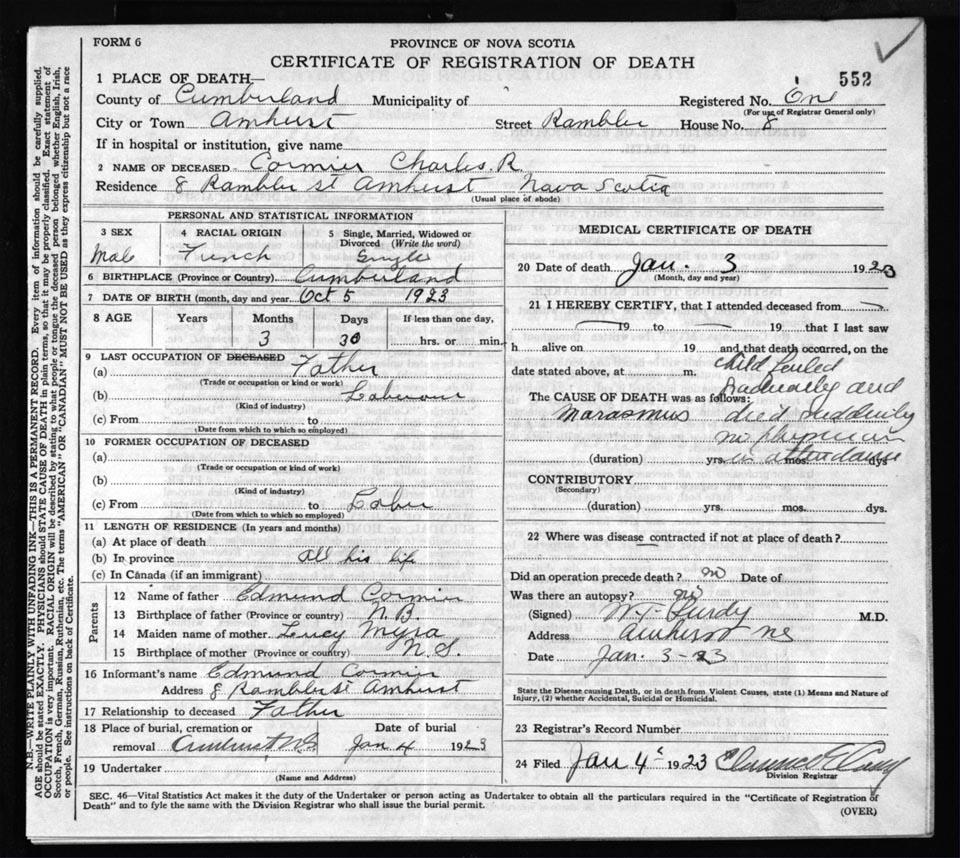 FORM 6
PROVINCE OF NOVA SCOTIA
CERTIFICATE OF REGISTRATION OF DEATH
552
1 PLACE OF DEATH—
County of Cumberland Municipality of Registered No. One
(For use of Registrar General only)
City or Town Amherst Street Rambler House No. 8
If in hospital or institution, give name
2 NAME OF DECEASED Cormier Charles. R
Residence 8 Rambler st Amherst Nova Scotia
(Usual place of abode)
PERSONAL AND STATISTICAL INFORMATION
3 SEX 4 RACIAL ORIGIN 5 Single, Married, Widowed or Divorced (Write the word)
Male French Single
6 BIRTHPLACE (Province or Country) Cumberland
7 DATE OF BIRTH (month, day and year) Oct 5 1923
8 AGE Years Months Days If less than one day,
3 30 hrs. or min.
9 LAST OCCUPATION OF DECEASED
(a) Father
(Trade or occupation or kind or work)
(b) Laberour
(Kind of industry)
(c) From to
(Date from which to which so employed)
10 FORMER OCCUPATION OF DECEASED
(a)
(Trade or occupation or kind of work)
(b)
(Kind of industry)
(c) From to Labur
(Date from which to which so employed)
11 LENGTH OF RESIDENCE (In years and months)
(a) At place of death
(b) In province all his life
(c) In Canada (if an immigrant)
Parents
12 Name of father Edmund Cormier
13 Birthplace of father (Province or country) N.B.
14 Maiden name of mother Lucy Myra
15 Birthplace of mother (Province or country) N.S.
16 Informant's name Edmund Cormier
Address 8 Rambler st Amherst
17 Relationship to deceased Father
18 Place of burial, cremation or removal Amherst NS Date of burial Jan 4 1923
19 Undertaker
(Name and Address)
MEDICAL CERTIFICATE OF DEATH
20 Date of death Jan. 3 1923
(Month, day and year)
21 I HEREBY CERTIFY, that I attended deceased from
19 to 19 that I last saw
h alive on 19 and that death occurred, on the
date stated above, at m. child failed
The CAUSE OF DEATH was as follows: gradually and
Marasmus died suddenly
no physician
(duration) yrs. mos. dys in attendance
CONTRIBUTORY
(Secondary)
(duration) yrs. mos. dys.
22 Where was disease contracted if not at place of death?
Did an operation precede death? no Date of
Was there an autopsy? no
(Signed) Purdy M.D.
Address Amherst NS
Date Jan. 3-23
State the Disease causing Death, or in death from Violent Causes, state (1) Means and Nature of
Injury, (2) whether Accidental, Suicidal or Homicidal.
23 Registrar's Record Number
24 Filed Jan 4 1923
Division Registrar
SEC. 46—Vital Statistics Act makes it the duty of the Undertaker or person acting as Undertaker to obtain all the particulars required in the "Certificate of Registration of
Death" and to fyle the same with the Division Registrar who shall issue the burial permit.
(OVER)
N.B.—WRITE PLAINLY WITH UNFADING INK—THIS IS A PERMANENT RECORD. Every item of information should be carefully supplied.
AGE should be stated EXACTLY. PHYSICIANS should STATE CAUSE OF DEATH in plain terms, so that it may be properly classified. Exact statement of
OCCUPATION is very important. RACIAL ORIGIN will be described by stating to what people or tongue the deceased person belonged whether English, Irish,
Scotch, French, German, Russian, Ruthenian, etc. The terms "AMERICAN" OR "CANADIAN" MUST NOT BE USED as they express citizenship but not a race
or people. See instructions on back of Certificate.